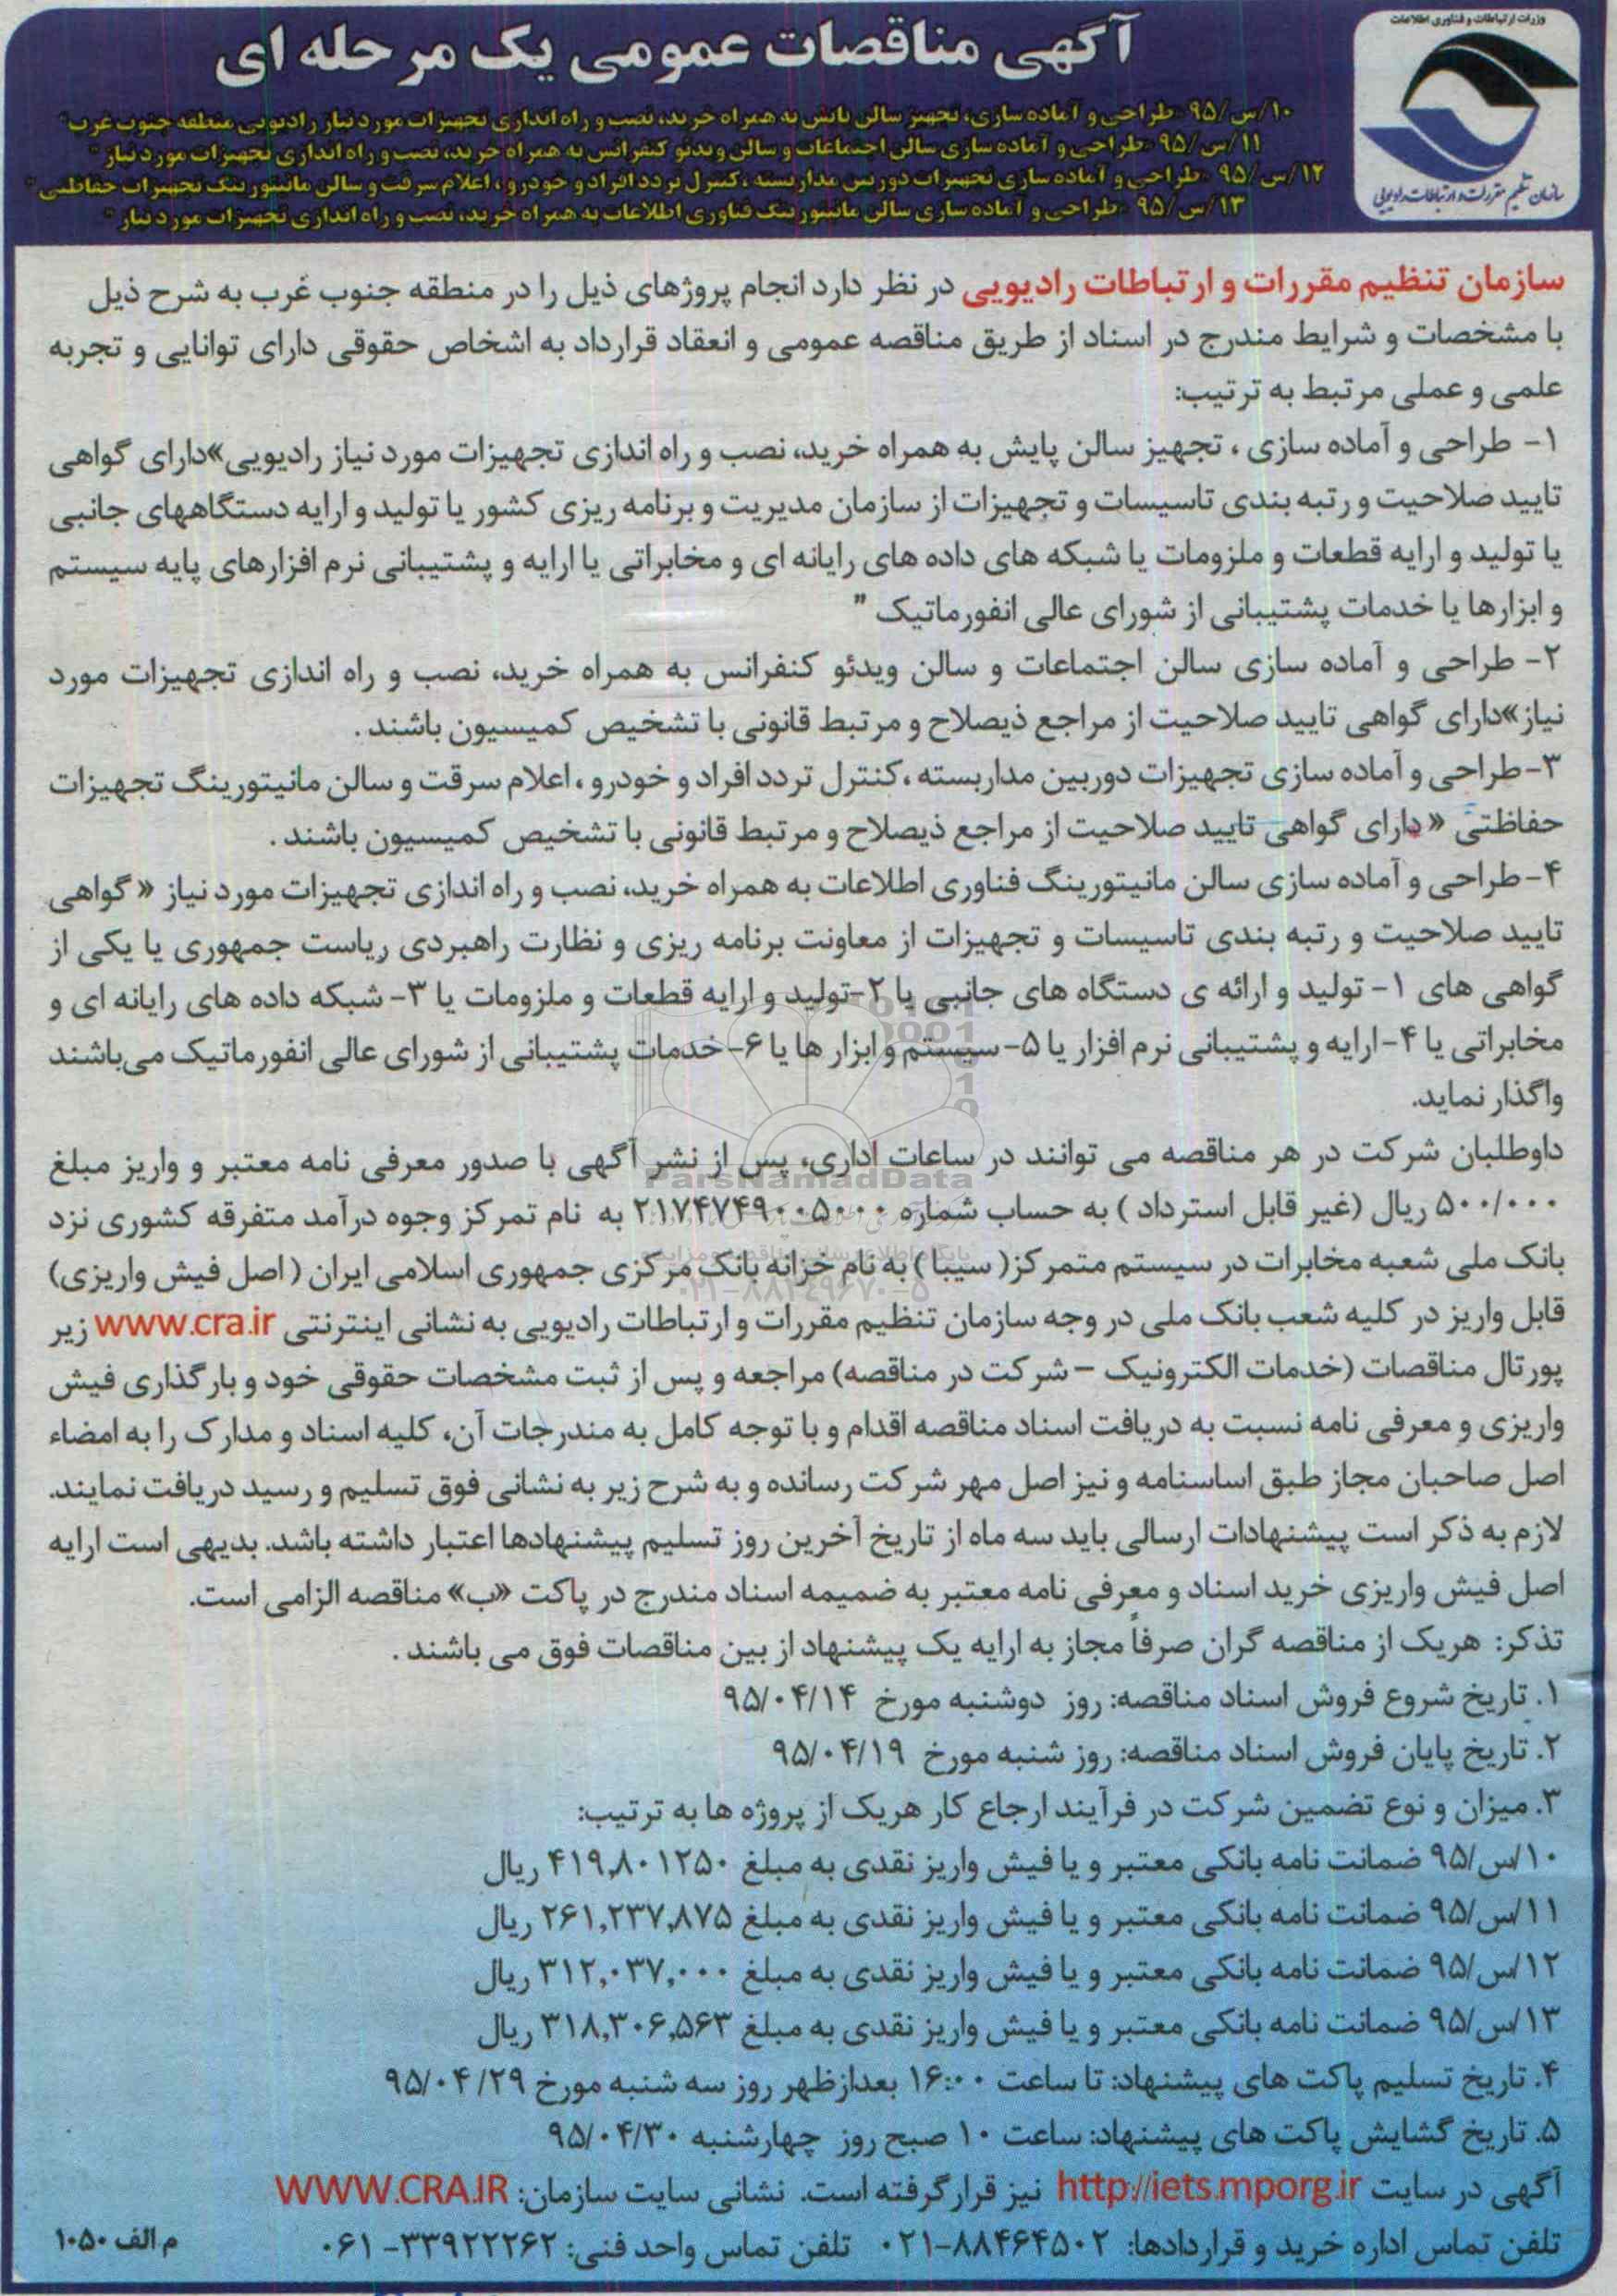 وزارت ارتباطات و فناوری اطلاعات
سازمان تنظیم مقررات و ارتباطات رادیویی
آگهی مناقصات عمومی یک مرحله ای
۱۰/س/۹۵ "طراحی و آماده سازی، تجهیز سالن پایش به همراه خرید، نصب و راه اندازی تجهیزات مورد نیاز رادیویی منطقه جنوب غرب"
۱۱/س/۹۵ "طراحی و آماده سازی سالن اجتماعات و سالن ویدئو کنفرانس به همراه خرید، نصب و راه اندازی تجهیزات مورد نیاز"
۱۲/س/۹۵ "طراحی و آماده سازی تجهیزات دوربین مداربسته، کنترل تردد افراد و خودرو، اعلام سرقت و سالن مانیتورینگ تجهیزات حفاظتی"
۱۳/س/۹۵ "طراحی و آماده سازی سالن مانیتورینگ فناوری اطلاعات به همراه خرید، نصب و راه اندازی تجهیزات مورد نیاز"
سازمان تنظیم مقررات و ارتباطات رادیویی در نظر دارد انجام پروژهای ذیل را در منطقه جنوب غرب به شرح ذیل
با مشخصات و شرایط مندرج در اسناد از طریق مناقصه عمومی و انعقاد قرارداد به اشخاص حقوقی دارای توانایی و تجربه
علمی و عملی مرتبط به ترتیب:
۱- طراحی و آماده سازی ، تجهیز سالن پایش به همراه خرید، نصب و راه اندازی تجهیزات مورد نیاز رادیویی»دارای گواهی
تایید صلاحیت و رتبه بندی تاسیسات و تجهیزات از سازمان مدیریت و برنامه ریزی کشور یا تولید و ارایه دستگاههای جانبی
یا تولید و ارایه قطعات و ملزومات یا شبکه های داده های رایانه ای و مخابراتی یا ارایه و پشتیبانی نرم افزارهای پایه سیستم
و ابزارها یا خدمات پشتیبانی از شورای عالی انفورماتیک "
۲- طراحی و آماده سازی سالن اجتماعات و سالن ویدئو کنفرانس به همراه خرید، نصب و راه اندازی تجهیزات مورد
نیاز»دارای گواهی تایید صلاحیت از مراجع ذیصلاح و مرتبط قانونی با تشخیص کمیسیون باشند .
۳- طراحی و آماده سازی تجهیزات دوربین مداربسته ،کنترل تردد افراد و خودرو ، اعلام سرقت و سالن مانیتورینگ تجهیزات
حفاظتی « دارای گواهی تایید صلاحیت از مراجع ذیصلاح و مرتبط قانونی با تشخیص کمیسیون باشند .
۴- طراحی و آماده سازی سالن مانیتورینگ فناوری اطلاعات به همراه خرید، نصب و راه اندازی تجهیزات مورد نیاز « گواهی
تایید صلاحیت و رتبه بندی تاسیسات و تجهیزات از معاونت برنامه ریزی و نظارت راهبردی ریاست جمهوری یا یکی از
گواهی های ۱- تولید و ارائه ی دستگاه های جانبی یا ۲-تولید و ارایه قطعات و ملزومات یا ۳- شبکه داده های رایانه ای و
مخابراتی یا ۴- ارایه و پشتیبانی نرم افزار یا ۵- سیستم و ابزار ها یا ۶- خدمات پشتیبانی از شورای عالی انفورماتیک می‌باشند
واگذار نماید.
داوطلبان شرکت در هر مناقصه می توانند در ساعات اداری، پس از نشر آگهی با صدور معرفی نامه معتبر و واریز مبلغ
ParsNamadData
۵۰۰/۰۰۰ ریال (غیر قابل استرداد ) به حساب شماره ۲۱۷۴۷۴۹۰۰۵۰۰۰ به نام تمرکز وجوه درآمد متفرقه کشوری نزد
بانک ملی شعبه مخابرات در سیستم متمرکز( سیبا ) به نام خزانه بانک مرکزی جمهوری اسلامی ایران ( اصل فیش واریزی)
۰۲۱-۸۸۳۴۹۶۷۰-۵
قابل واریز در کلیه شعب بانک ملی در وجه سازمان تنظیم مقررات و ارتباطات رادیویی به نشانی اینترنتی www.cra.ir زیر
پورتال مناقصات (خدمات الکترونیک – شرکت در مناقصه) مراجعه و پس از ثبت مشخصات حقوقی خود و بارگذاری فیش
واریزی و معرفی نامه نسبت به دریافت اسناد مناقصه اقدام و با توجه کامل به مندرجات آن، کلیه اسناد و مدارک را به امضاء
اصل صاحبان مجاز طبق اساسنامه و نیز اصل مهر شرکت رسانده و به شرح زیر به نشانی فوق تسلیم و رسید دریافت نمایند.
لازم به ذکر است پیشنهادات ارسالی باید سه ماه از تاریخ آخرین روز تسلیم پیشنهادها اعتبار داشته باشد. بدیهی است ارایه
اصل فیش واریزی خرید اسناد و معرفی نامه معتبر به ضمیمه اسناد مندرج در پاکت «ب» مناقصه الزامی است.
تذکر: هریک از مناقصه گران صرفاً مجاز به ارایه یک پیشنهاد از بین مناقصات فوق می باشند .
۱. تاریخ شروع فروش اسناد مناقصه: روز دوشنبه مورخ ۹۵/۰۴/۱۴
۲. تاریخ پایان فروش اسناد مناقصه: روز شنبه مورخ ۹۵/۰۴/۱۹
۳. میزان و نوع تضمین شرکت در فرآیند ارجاع کار هریک از پروژه ها به ترتیب:
۱۰/س/۹۵ ضمانت نامه بانکی معتبر و یا فیش واریز نقدی به مبلغ ۴۱۹,۸۰۱۲۵۰ ریال
۱۱/س/۹۵ ضمانت نامه بانکی معتبر و یا فیش واریز نقدی به مبلغ ۲۶۱,۲۳۷,۸۷۵ ریال
۱۲/س/۹۵ ضمانت نامه بانکی معتبر و یا فیش واریز نقدی به مبلغ ۳۱۲,۰۳۷,۰۰۰ ریال
۱۳/س/۹۵ ضمانت نامه بانکی معتبر و یا فیش واریز نقدی به مبلغ ۳۱۸,۳۰۶,۵۶۳ ریال
۴. تاریخ تسلیم پاکت های پیشنهاد: تا ساعت ۱۶:۰۰ بعدازظهر روز سه شنبه مورخ ۹۵/۰۴/۲۹
۵. تاریخ گشایش پاکت های پیشنهاد: ساعت ۱۰ صبح روز چهارشنبه ۹۵/۰۴/۳۰
آگهی در سایت http://iets.mporg.ir نیز قرار گرفته است. نشانی سایت سازمان: WWW.CRA.IR
تلفن تماس اداره خرید و قراردادها: ۰۲۱-۸۸۴۶۴۵۰۲ تلفن تماس واحد فنی: ۰۶۱-۳۳۹۲۲۲۶۲
م الف ۱۰۵۰